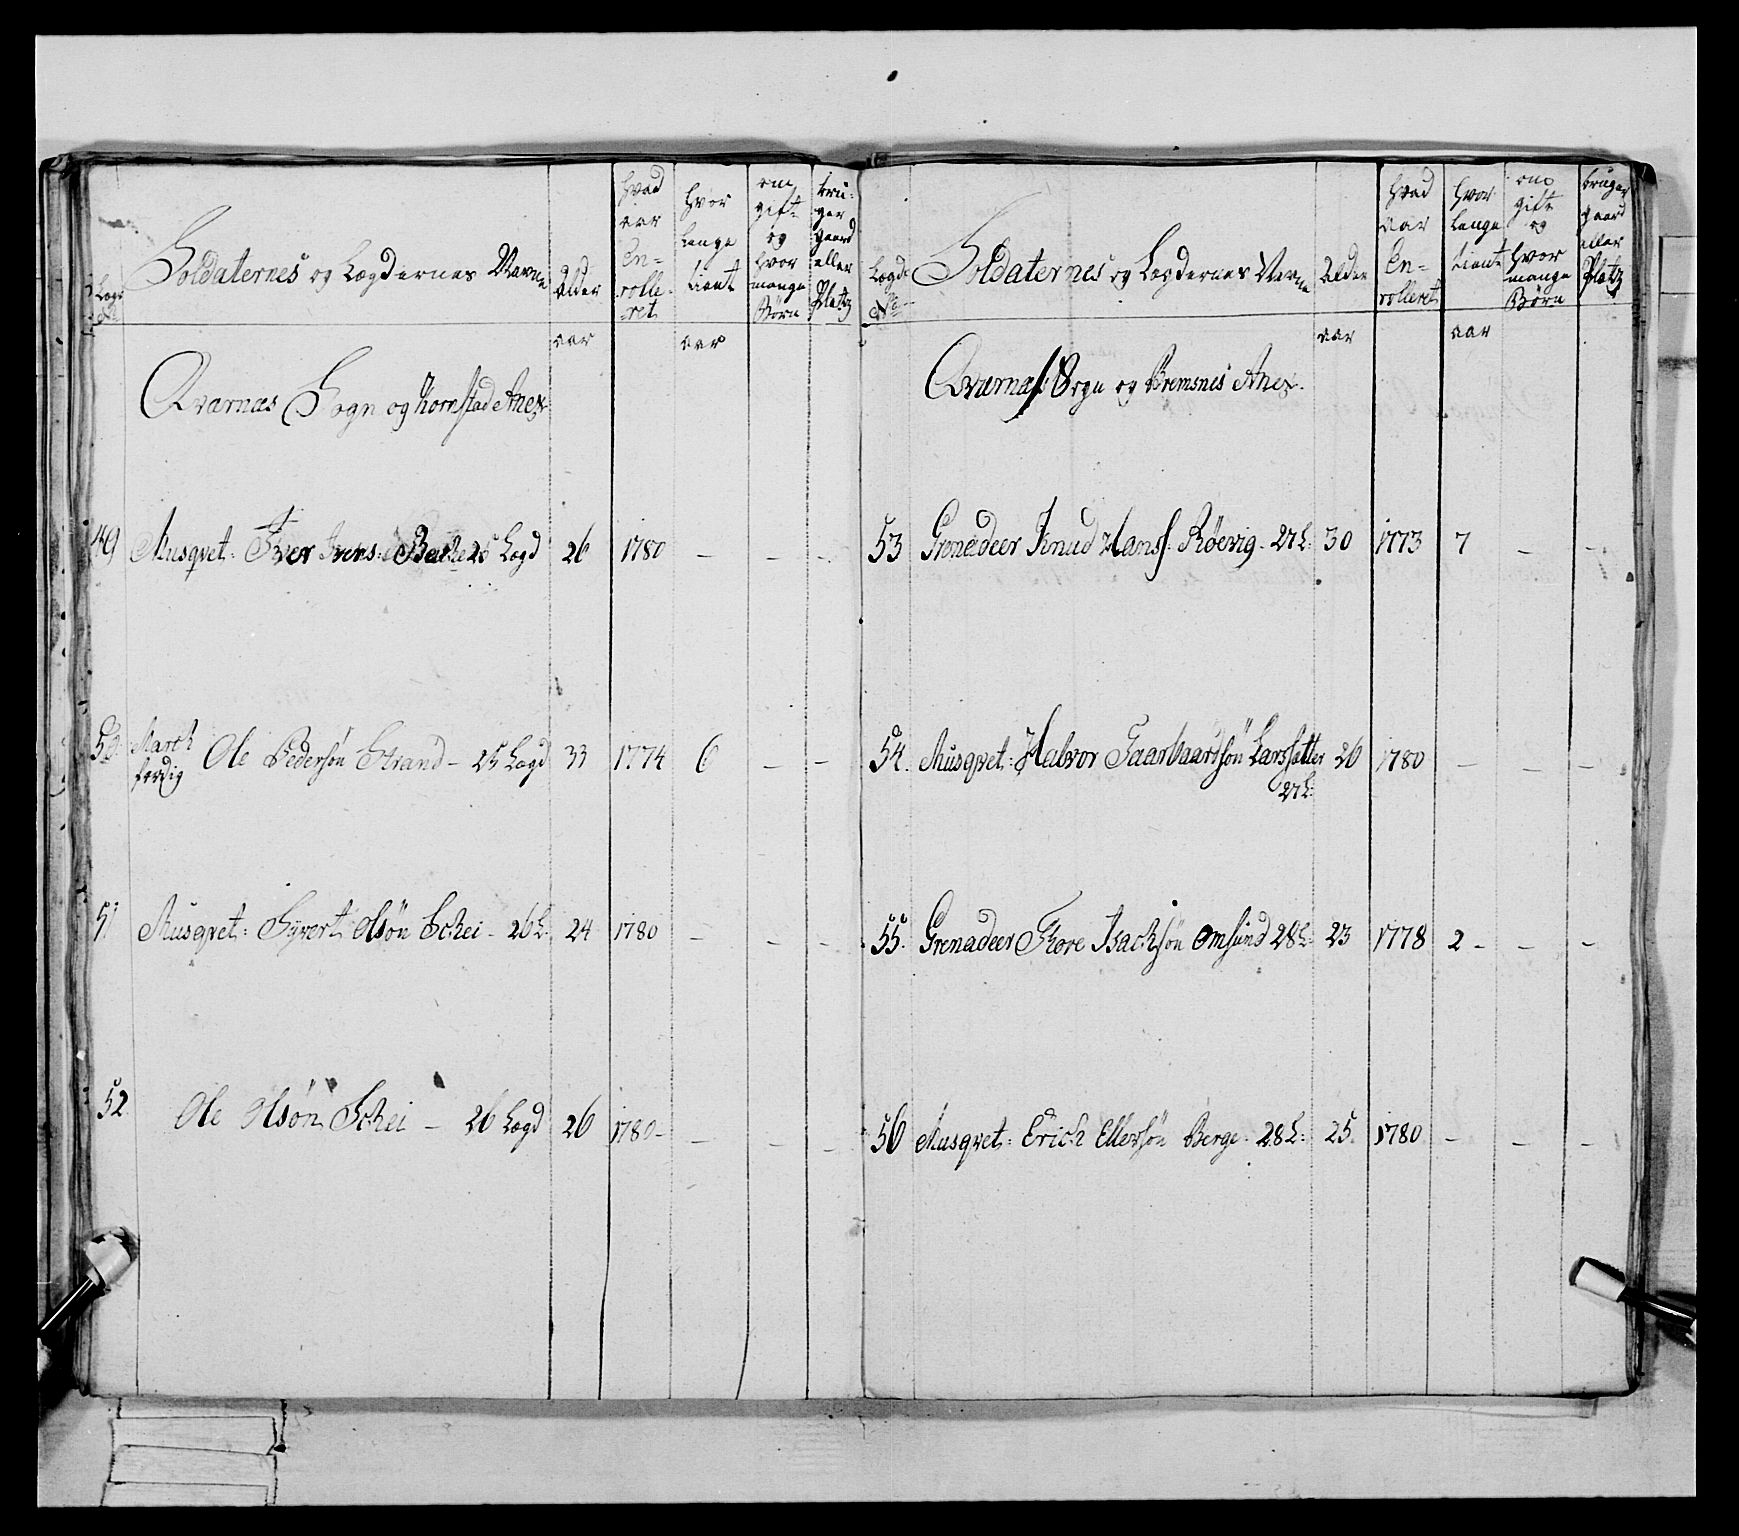 Soldaternes og Lægdernes Navne
Alder
hvad
aar
En-
rolle-
ret
hvor
lenge
tient
om
gift
og
hvor
mange
Børn
bru-
ger
gaard
eller
Platz
aar
aar
Qvarnæs Sogn og Kornstad Anex
49 Musqvet: Iver Ivers: 25 Lægd 26 1780 — — —
50 March færdig Ole Pedersøn Strand — 25 Lægd 33 1774 6 — —
51 Musqvet: Syvert Olsøn Schei — 26 L: 24 1780 — — —
52 Ole Olsøn Schei — 26 Lægd 26 1780 — — —
Lægd
No
Soldaternes og Lægdernes Navne
Alder
hvad
aar
En-
rolleret
hvor
lenge
tient
om
gift
og
hvor
mange
Børn
bruger
gaard
eller
Platz
aar
aar
Qværnæs Sogn og Bremsnes Anex.
53 Grenadeer Knud Hanss: Røevig — 27 L: 30 1773 7 — —
54. Musqvet: Halvor Gaarbaardsøn Larssætter 26 1780 — — —
27 L:
55. Grenadeer Thore Isachsøn Omsund 28 L: 23 1778 2 — — —
56 Musqvet: Erich Ellersøn Berge — 28 L: 25 1780 — — —